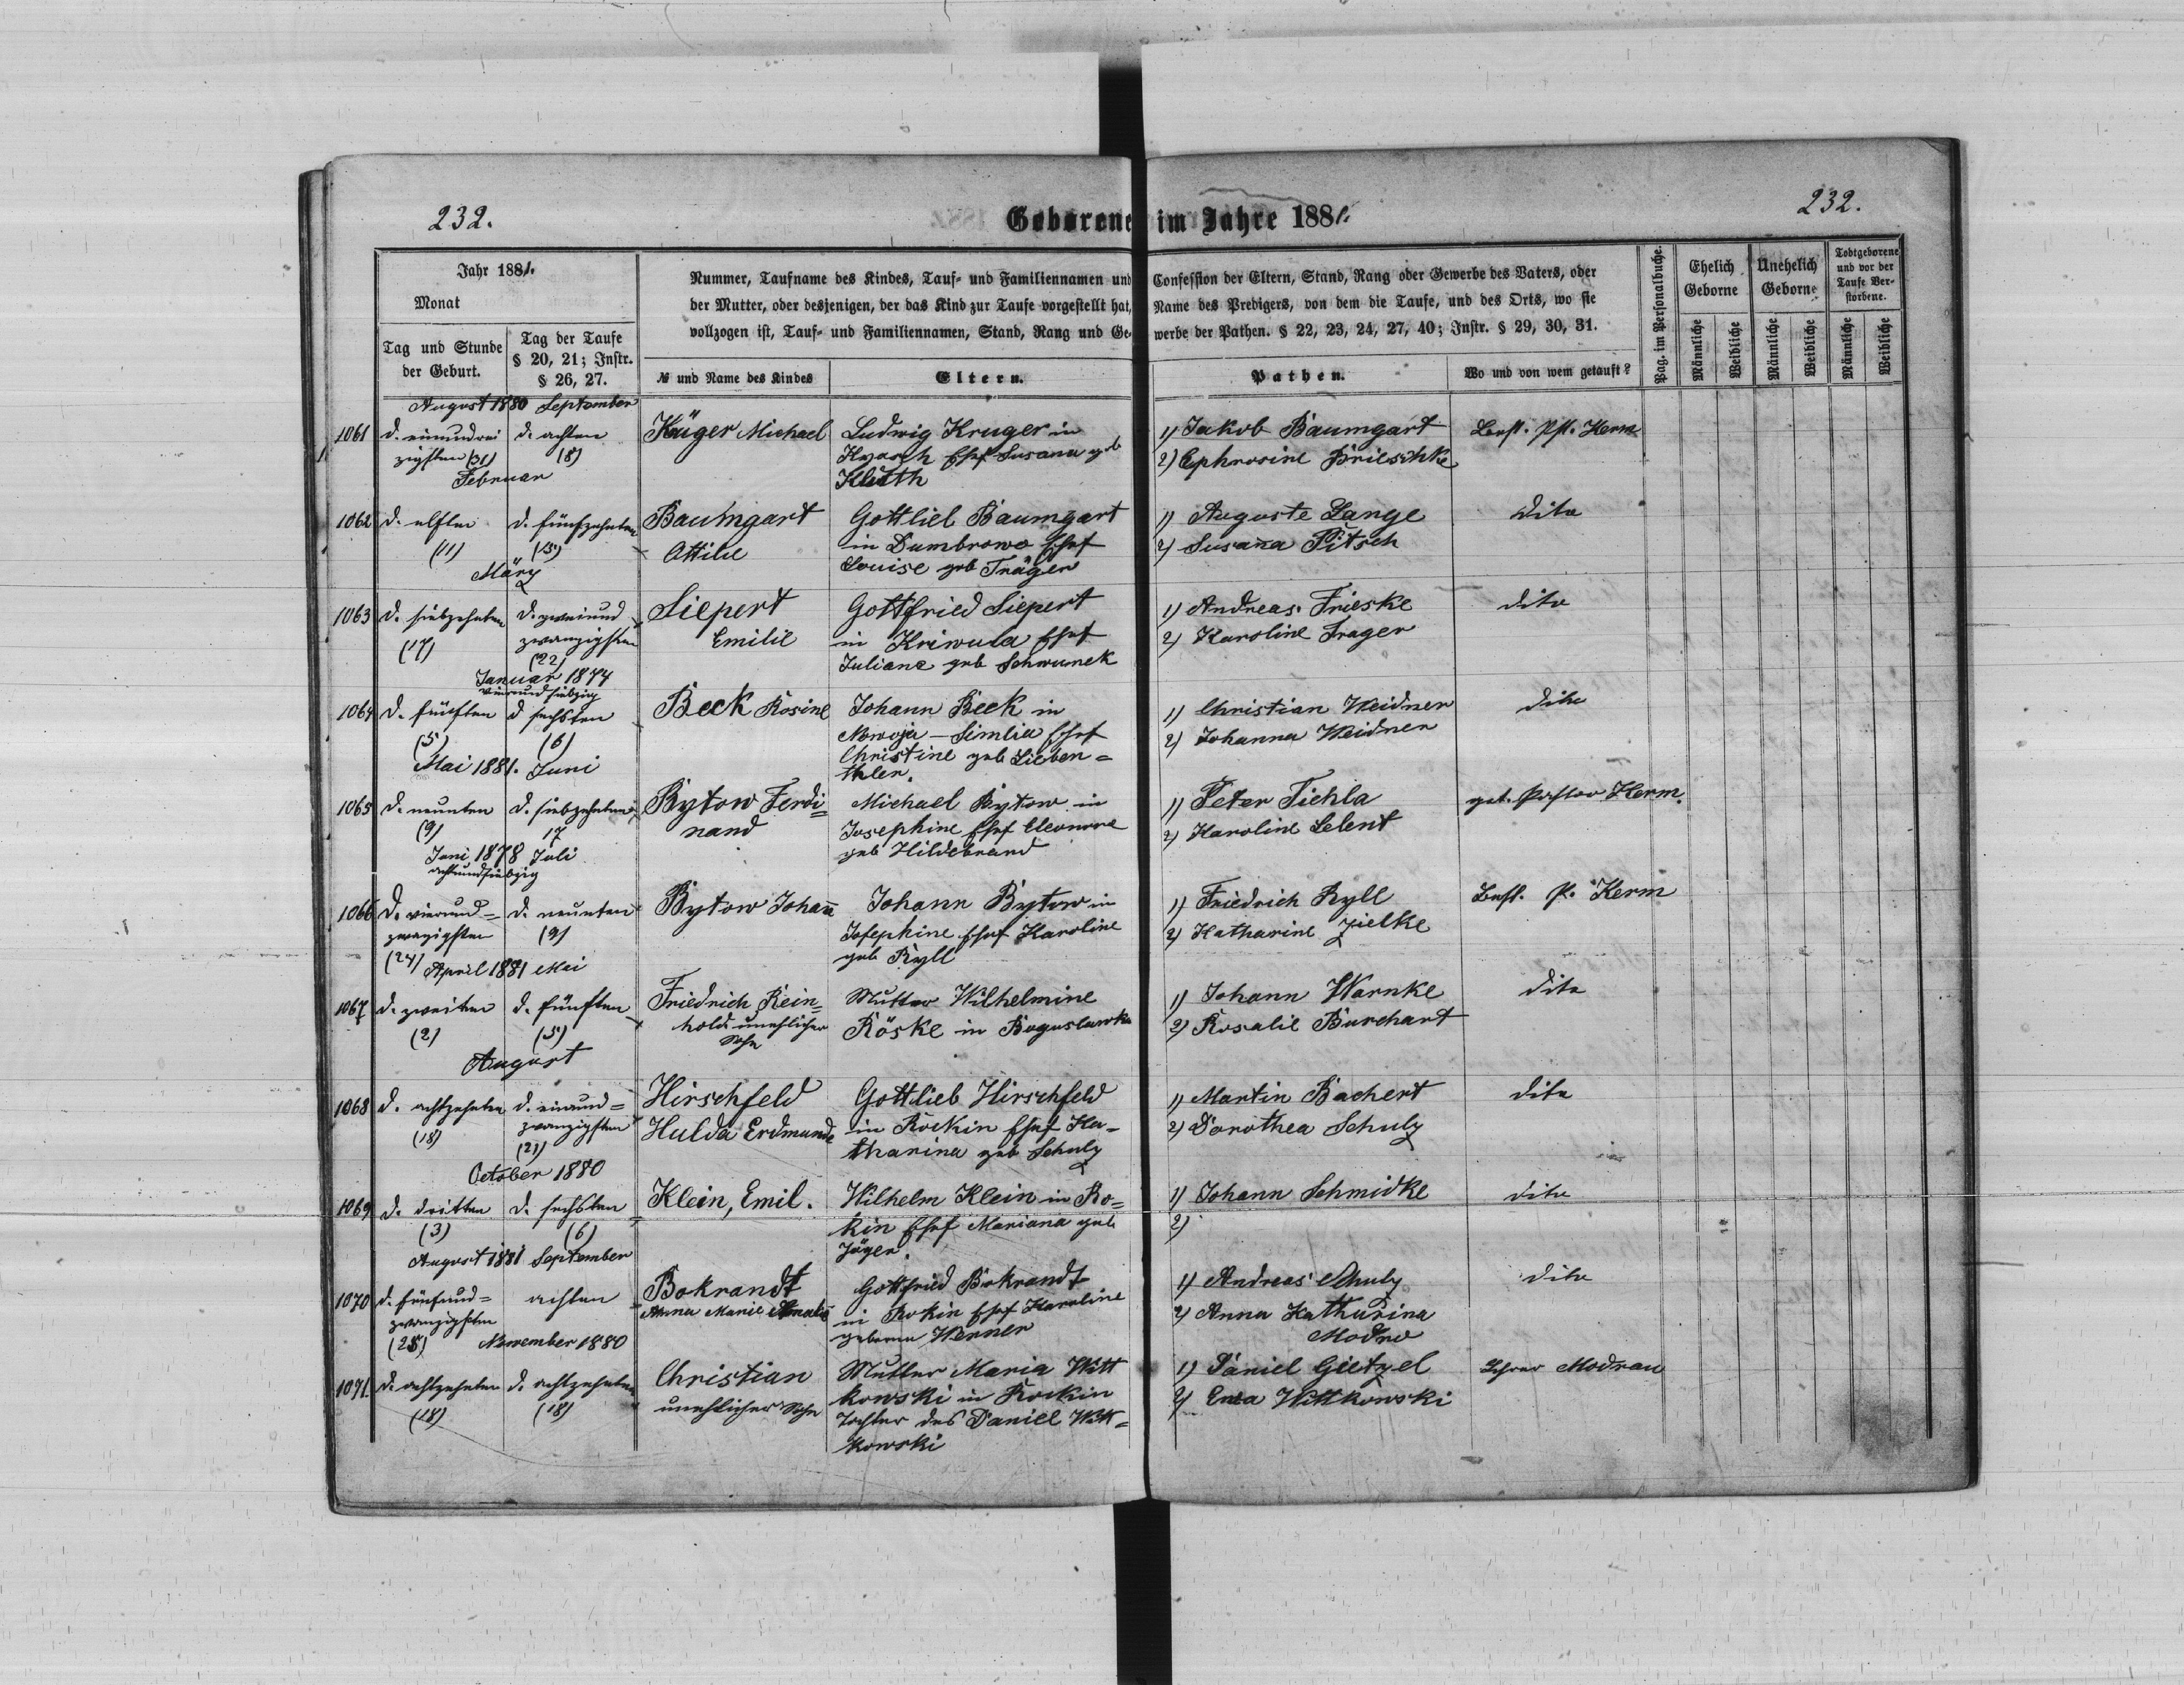 232.
Geborene im Jahre 1881.
232.
Jahr 1881.
Monat
Tag und Stunde der Geburt.
Tag der Taufe § 20, 21; Instr. § 26, 27.
Nummer, Taufname des Kindes, Tauf- und Familiennamen und Confession der Eltern, Stand, Rang oder Gewerbe des Vaters, oder
der Mutter, oder desjenigen, der das Kind zur Taufe vorgestellt hat, Name des Predigers, von dem die Taufe, und des Orts, wo sie
vollzogen ist, Tauf- und Familiennamen, Stand, Rang und Gewerbe der Pathen. § 22, 23, 24, 27, 40; Instr. § 29, 30, 31.
№ und Name des Kindes
Eltern.
Pathen.
Wo und von wem getauft?
Pag. im Personalbuche.
Ehelich Geborne
Unehelich Geborne
Todtgeborene und vor der Taufe Verstorbene.
Männliche Weibliche Männliche Weibliche Männliche Weibliche
August 1880 September
1061 d. einunddrei d. achten Krüger Michael Ludwig Kruger in 1) Jakob Baumgart Best. Pst. Herm
zigsten (31) (8) Ehef Susana geb 2) Ephrosine Brieschke
Februar Kluth
1062 d. elften d. fünfzehnten Baumgart Gottlieb Baumgart 1) Auguste Lange dito
(11) (15) Ottilie in Dumbrowo Ehef 2) Susana Pitsch
März Louise geb Träger
1063 d. siebzehnten d. zweiund Siepert Gottfried Siepert 1) Andreas Frieske dito
(17) zwanzigsten Emilie in Kriwula Ehef 2) Karoline Trager
(22) Juliane geb Schwunek
Januar 1874
vierundsiebzig
1064 d. fünften d sechsten Beck Rosine Johann Beck in 1) Christian Weidner dito
(5) (6) Nowoja-Simlia Ehef 2) Johanna Weidner
Christine geb Lieben=
Mai 1881. Juni thler.
1065 d. neunten d. siebzehnten Bytow Ferdi= Michael Bytow in 1) Peter Tichla get. Pastor Herm.
(9) 17 nand Josephine Ehef Eleonore 2) Karoline Lelent
Juni 1878 Juli geb Hildebrand
achtundsiebzig
1066 d. vierund= d. neunten Bytow Johann Johann Bytow in 1) Friedrich Ryll Best. P. Herm
zwanzigsten (9) Josephine Ehef Karoline 2) Katharine Zielke
(24) geb Ryll
April 1881 Mai
1067 d. zweiten d. fünften Friedrich Rein= Mutter Wilhelmine 1) Johann Warnke dito
(2) (5) hold unehlicher Röske in Boguslawka 2) Rosalie Burchart
Sohn
August
1068 d. achtzehnten d. einund= Hirschfeld Gottlieb Hirschfeld 1) Martin Bachert dito
(18) zwanzigsten Hulda Erdmunde in Rockin Ehef Ka= 2) Dorothea Schulz
(21) tharina geb Schulz
October 1880
1069 d. dritten d. sechsten Klein, Emil. Wilhelm Klein in Ro= 1) Johann Schmidke dito
(3) (6) kin Ehef Mariana geb 2)
Jäger.
August 1881 September
1070 d. fünfund= achten Bokrandt Gottfried Bokrandt 1) Andreas Schulz dito
zwanzigsten Anna Marie Amalie in Rokin Ehef Karoline 2) Anna Katharina
(25) geborene Werner Modrow
November 1880
1071. d. achtzehnten d. achtzehnten Christian Mutter Maria Witt 1) Daniel Gietzel Lehrer Modrau
(18) (18) unehlicher Sohn kowski in Rockin 2) Wittkowski
Tochter des Daniel Witt=
kowski